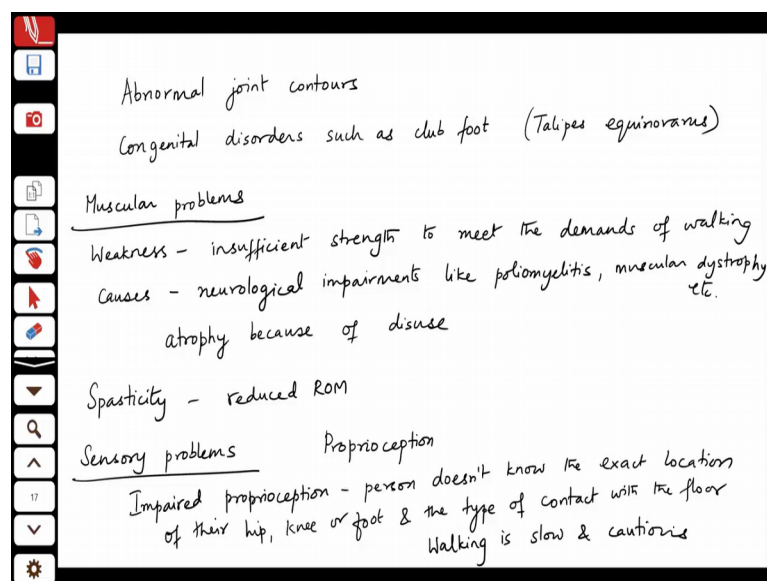 Abnormal joint contours
Congenital disorders such as club foot (Talipes equinovarus)
Muscular problems
Weakness - insufficient strength to meet the demands of walking
Causes - neurological impairments like poliomyelitis, muscular dystrophy
etc.
atrophy because of disuse
Spasticity - reduced ROM
Sensory problems Proprioception
Impaired proprioception - person doesn't know the exact location
of their hip, knee or foot & the type of contact with the floor
Walking is slow & cautious
17